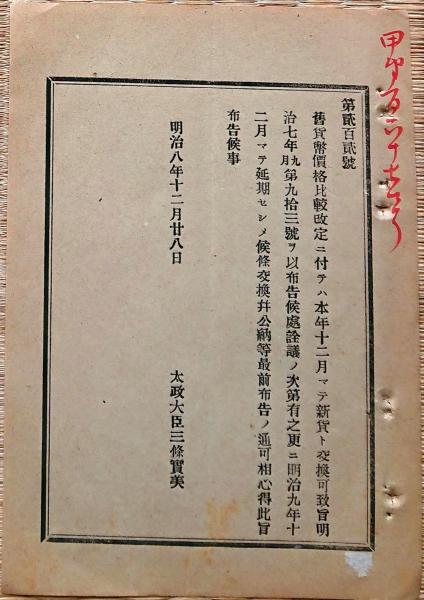 甲第百六十七号
第貳百貳號
舊貨幣價格比較改定ニ付テハ本年十二月マテ新貨ト交換可致旨明
治七年九月第九拾三號ヲ以布告候處詮議ノ次第有之更ニ明治九年十
二月マテ延期セシメ候條交換幷公納等最前布告ノ通可相心得此旨
布告候事
明治八年十二月廿八日
太政大臣三條實美